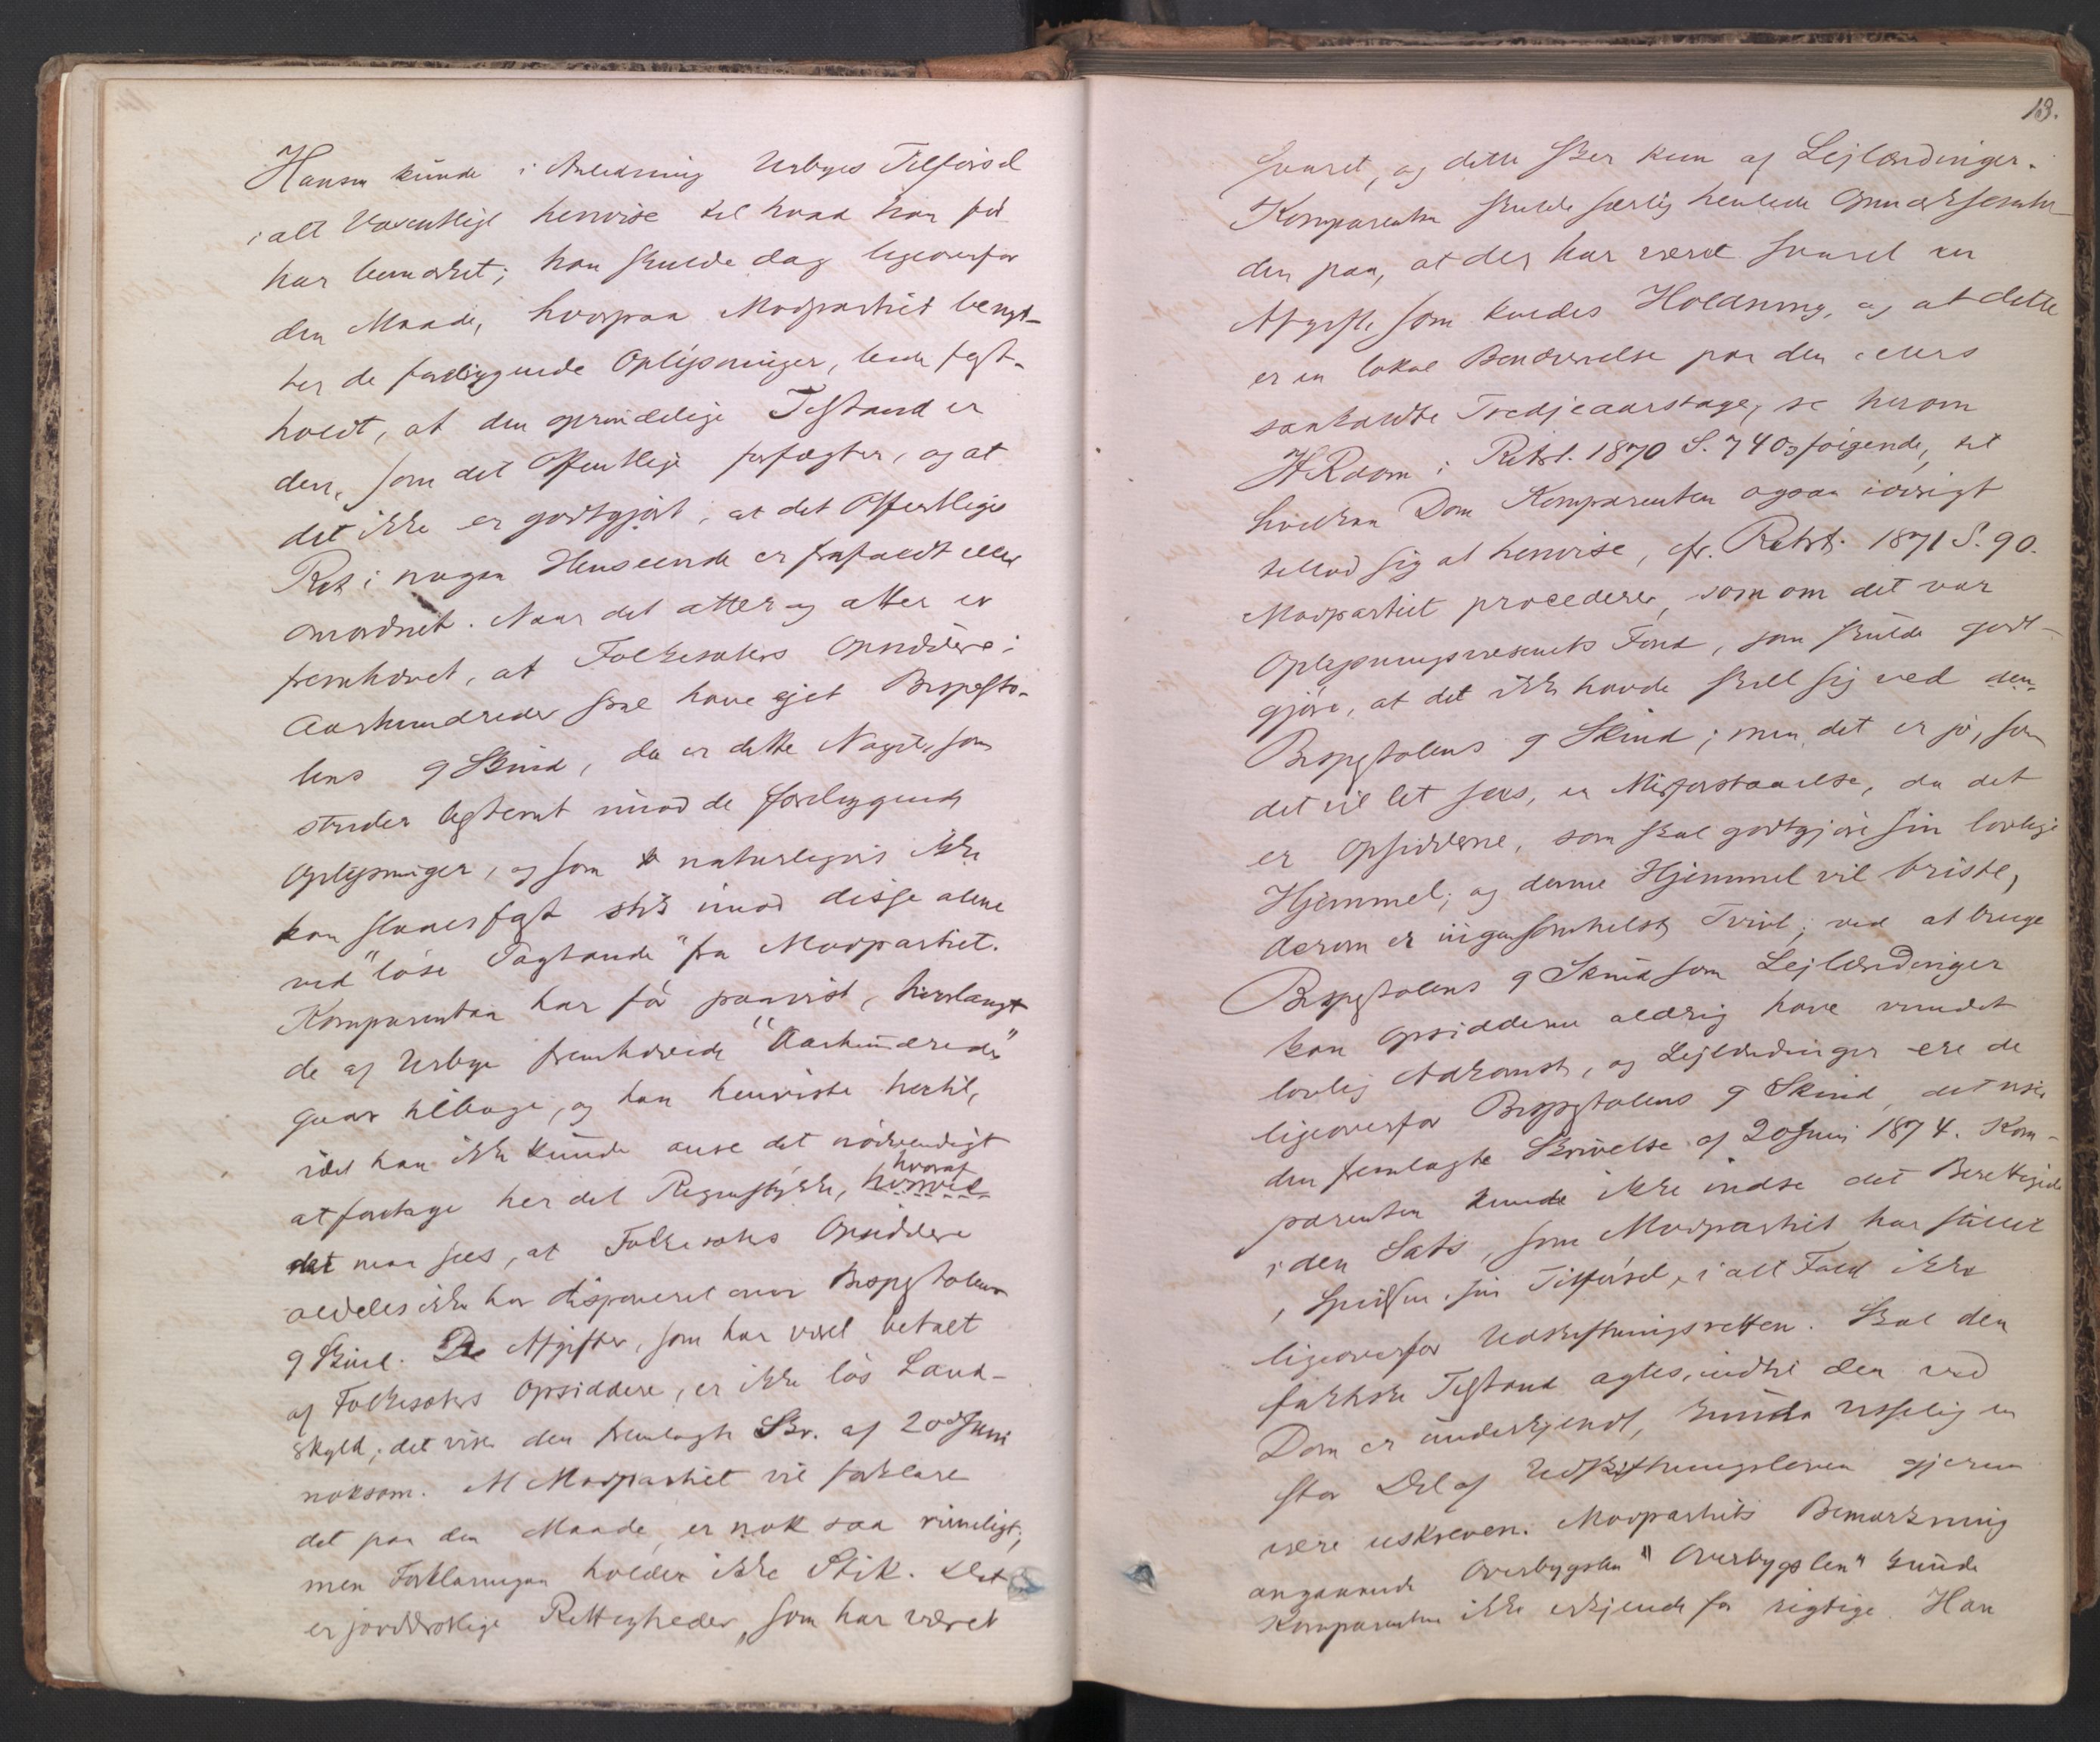 Hansen kunde i Anledning Urbyes Tilførsel
i alt Væsentligt henvise til hvad han før
har bemærket; han skulde dog ligeoverfor
den Maade, hvorpaa Modpartiet benyt-
ter de foreliggende Oplysninger, bede fast-
holdt, at den oprindelige Tilstand er
den, som det Offentlige forfægter, og at
det ikke er godtgjort, at det Offentliges
Ret i nogen Henseende er frafaldt eller
omordnet. Naar det atter og atter er
fremhævet, at Folkesøters Opsiddere i
Aarhundreder skal have ejet Bispesto-
lens 9 Skind, da er dette Noget, som
strider bestemt imod de foreliggende
Oplysninger, og som naturligvis ikke
kan slaaes fast stik imod disse alene
ved "løse Paastande" fra Modpartiet.
Komparenten har før paavist, hvorlangt
de af Urbye fremhævede "Aarhundreder"
gaar tilbage, og han henviste hertil,
idet han ikke kunde anse det nødvendigt
at foretage her det Regnestykke, hvoraf
det maa sees, at Folkesøters Opsiddere
aldeles ikke har disponeret over Bispestolens
9 Skind. De Afgifter, som har været betalt
af Folkesøters Opsiddere, er ikke løs Land-
skyld; det viser den fremlagte Skr. af 20de Juni
noksom. At Modpartiet vil forklare
det paa den Maade, er nok saa rimeligt;
men Forklaringen holder ikke Stik. Det
er jorddrotlige Rettigheder, som har været
13.
svaret, og dette sker kun af Lejlændinger.
Komparenten skulde særlig henlede Opmærksomhe-
den paa, at der har været svaret en
Afgift, som kaldes Holdning, og at dette
er en lokal Benævnelse paa den ellers
saakaldte Tredjeaarstage, se herom
H R dom i Retst. 1870 S. 740 og følgende, til
hvilken Dom Komparenten ogsaa iøvrigt
tillod sig at henvise, cfr. Retst. 1871 S. 90.
Modpartiet procederer, som om det var
Oplysningsvæsenets Fond, som skulde godt-
gjøre, at det ikke havde skilt sig ved den
Bispestolens 9 Skind; men det er jo, som
det vil let sees, en Misforstaaelse, da det
er Opsidderne, som skal godtgjøre sin lovlige
Hjemmel; og denne Hjemmel vil briste,
derom er ingensomhelst Tvivl; ved at bruge
Bispestolens 9 Skind som Lejlændinger
kan Opsidderne aldrig have vundet
lovlig Adkomst, og Lejlændinger ere de
ligeoverfor Bispestolens 9 Skind, det viser
den fremlagte Skrivelse af 20 Juni 1874. Kom-
parenten kunde ikke indse det Berettigede
i den Sats, som Modpartiet har stillet
i Spidsen i sin Tilførsel, i alt Fald ikke
ligeoverfor Udskiftningsretten. Skal den
faktiske Tilstand agtes, indtil den ved
Dom er underkjendt, kunde visselig en
stor Del af Udskiftningsloven gjerne
være uskreven. Modpartiets Bemærkning
angaaende Overbygslen "Overbygslen" kunde
Komparenten ikke erkjende for rigtige. Han